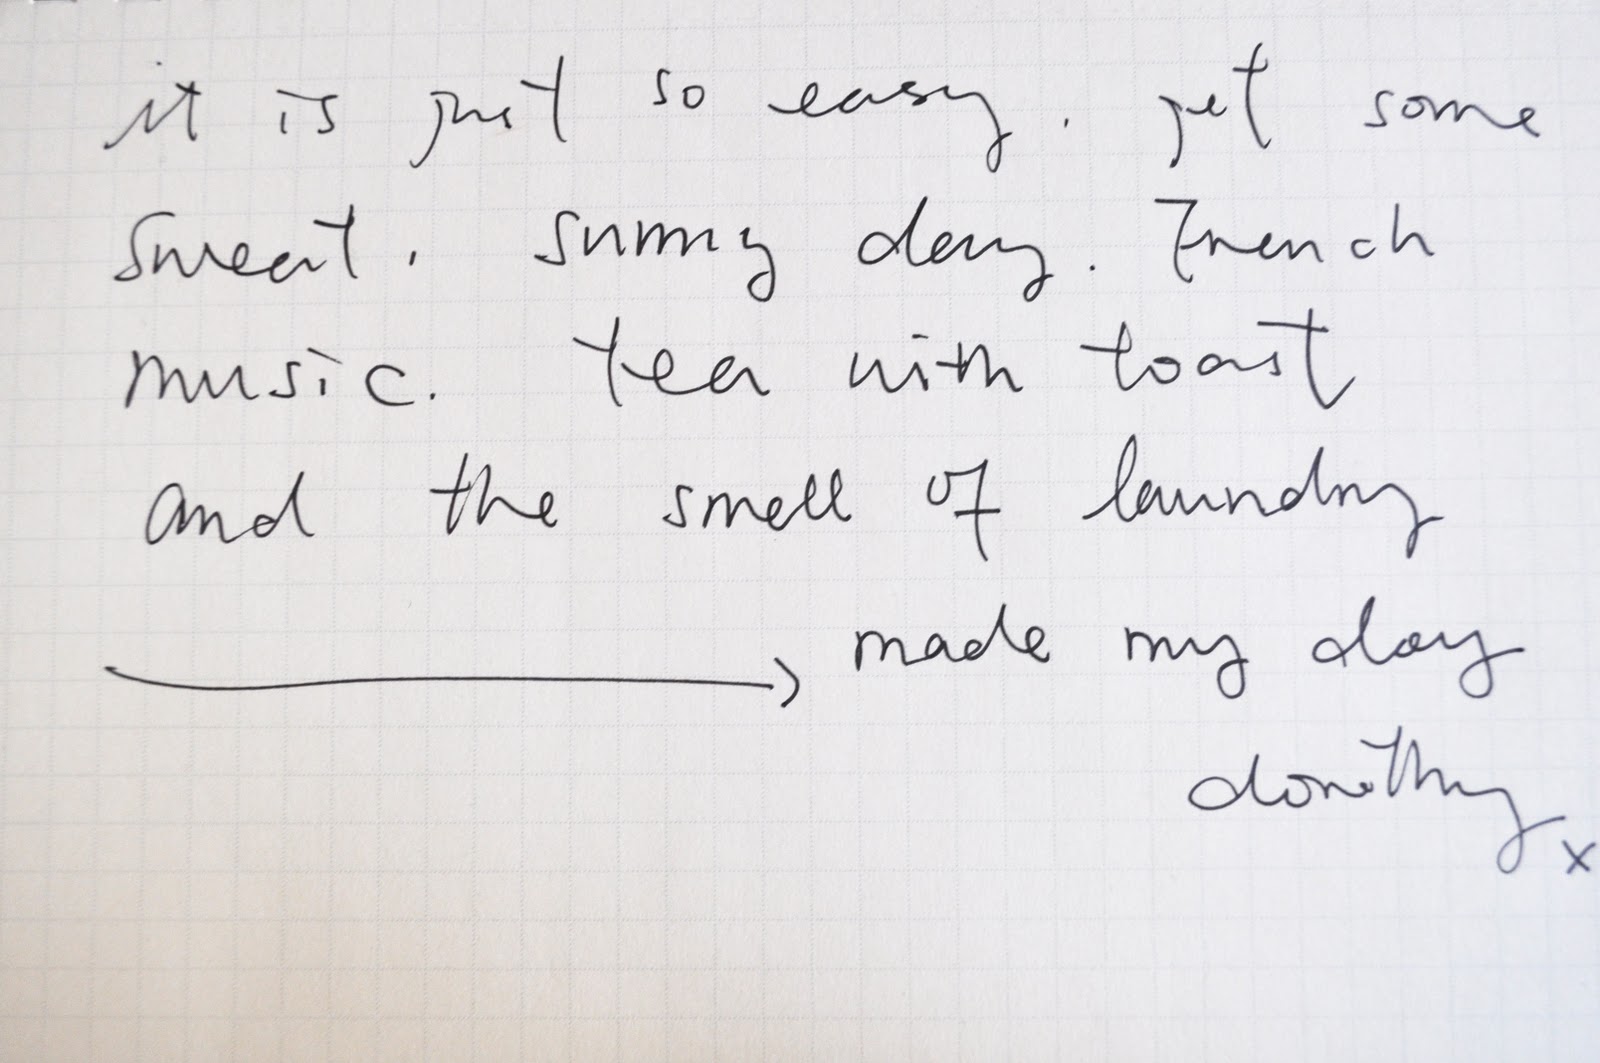 it is just so easy. get some
sweat. sunny day. French
music. tea with toast
and the smell of laundry
→ made my day
dorothy x